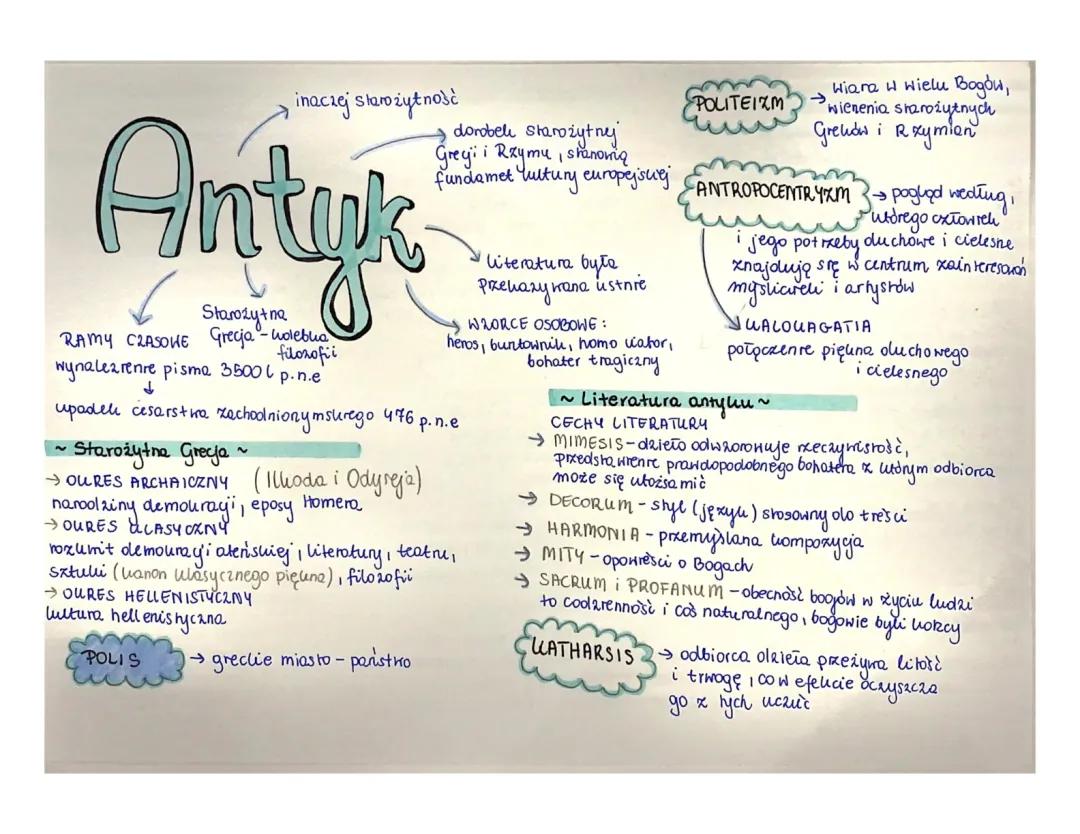 Antyk
inaczej starożytność
dorobek starożytnej
Grecji i Rzymu, stanowią
fundamet kultury europejskiej
literatura była
przekazywana ustnie
WZORCE OSOBOWE:
heros, buntownik, homo viator,
bohater tragiczny
Starożytna
Grecja - kolebka
filozofii
RAMY CZASOWE
wynalezienie pisma 3500 l p.n.e
↓
upadek cesarstwa zachodniorzymskiego 476 p.n.e
~ Starożytna Grecja ~
→ OKRES ARCHAICZNY (Illiada i Odyseja)
narodziny demokracji, eposy Homera
→ OKRES KLASYCZNY
rozkwit demokracji ateńskiej, literatury, teatru,
sztuki (kanon klasycznego piękna), filozofii
→ OKRES HELLENISTYCZNY
kultura hellenistyczna
POLIS → greckie miasto - państwo
POLITEIZM → wiara w wielu Bogów,
wierzenia starożytnych
Greków i Rzymian
ANTROPOCENTRYZM → pogląd według,
którego człowiek
i jego potrzeby duchowe i cielesne
znajdują się w centrum zainteresowań
myślicieli i artystów
KALOKAGATIA
połączenie piękna duchowego
i cielesnego
~ Literatura antyku ~
CECHY LITERATURY
→ MIMESIS - dzieło odwzorowuje rzeczywistość,
przedstawienie prawdopodobnego bohatera z którym odbiorca
może się utożsamić
→ DECORUM - styl (języku) stosowny do treści
→ HARMONIA - przemyślana kompozycja
→ MITY - opowieści o Bogach
→ SACRUM i PROFANUM - obecność bogów w życiu ludzi
to codzienność i coś naturalnego, bogowie byli wśród
KATHARSIS → odbiorca dzieła przeżywa litość
i trwogę, co w efekcie oczyszcza
go z tych uczuć